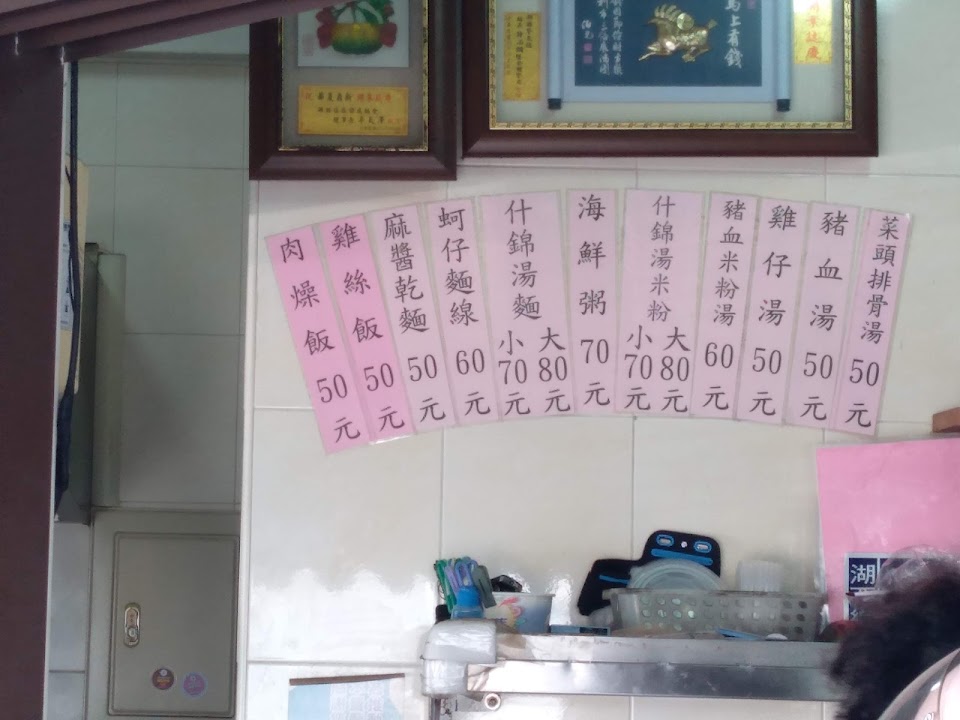 馬上有錢
肉燥飯 50元
雞絲飯 50元
麻醬乾麵 50元
蚵仔麵線 60元
什錦湯麵 小70元 大80元
海鮮粥 70元
什錦湯米粉 小70元 大80元
豬血米粉湯 60元
雞仔湯 50元
豬血湯 50元
菜頭排骨湯 50元
湖